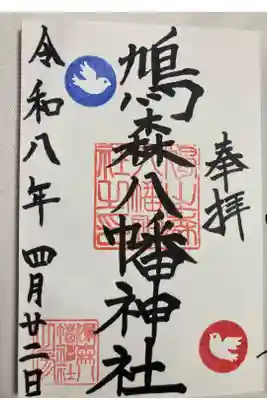 奉拝
鳩森八幡神社
令和八年四月廿二日